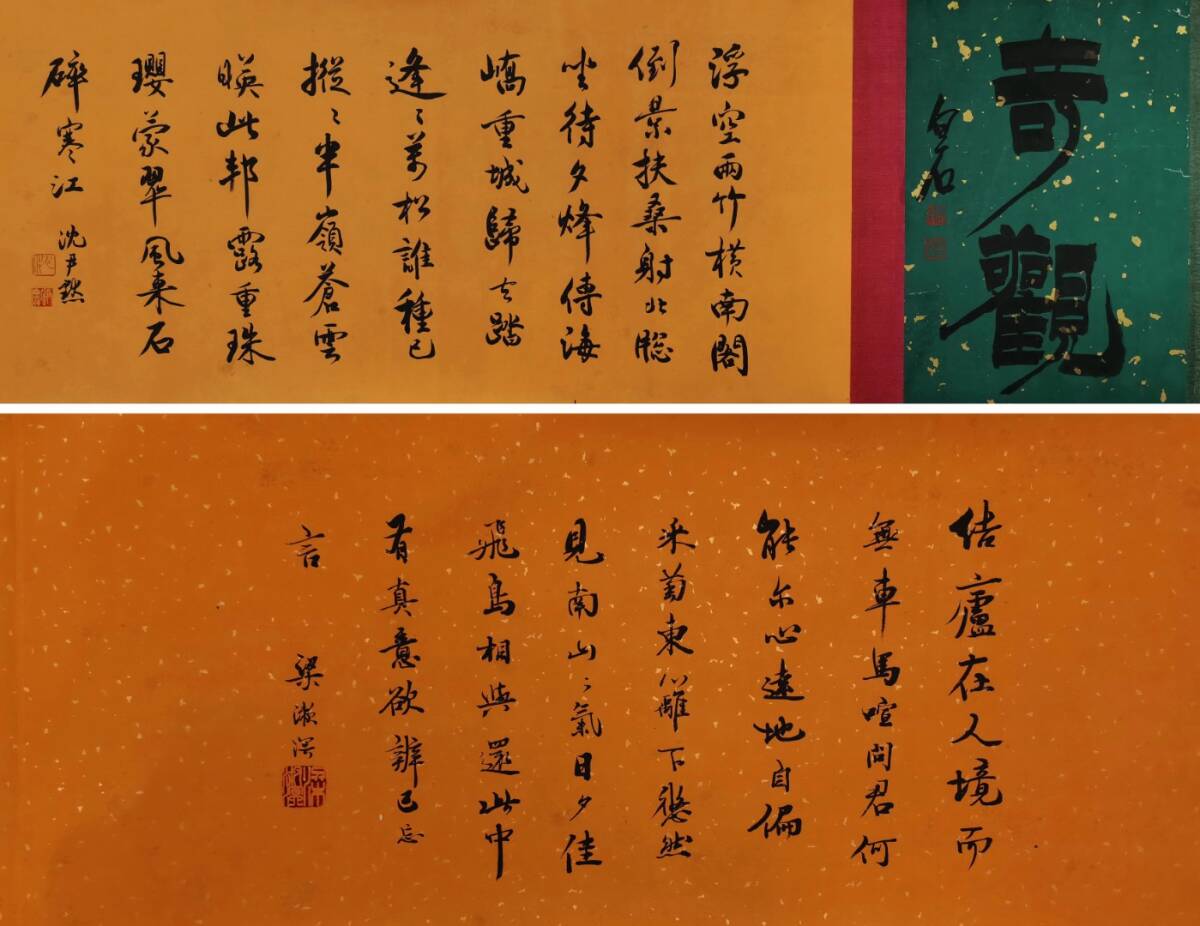 奇觀
白石
浮空兩竹橫南閣
倒景扶桑射北牕
坐待夕烽傳海
嶠重城歸去踏
逢〻萬松誰種已
摐〻半嶺蒼雲
暎此邦露重珠
瓔蒙翠風來石
碎寒江 沈尹默
結廬在人境而
無車馬喧問君何
能尔心遠地自偏
采菊東籬下悠然
見南山〻氣日夕佳
飛鳥相與還此中
有真意欲辨已忘
言 梁漱溟